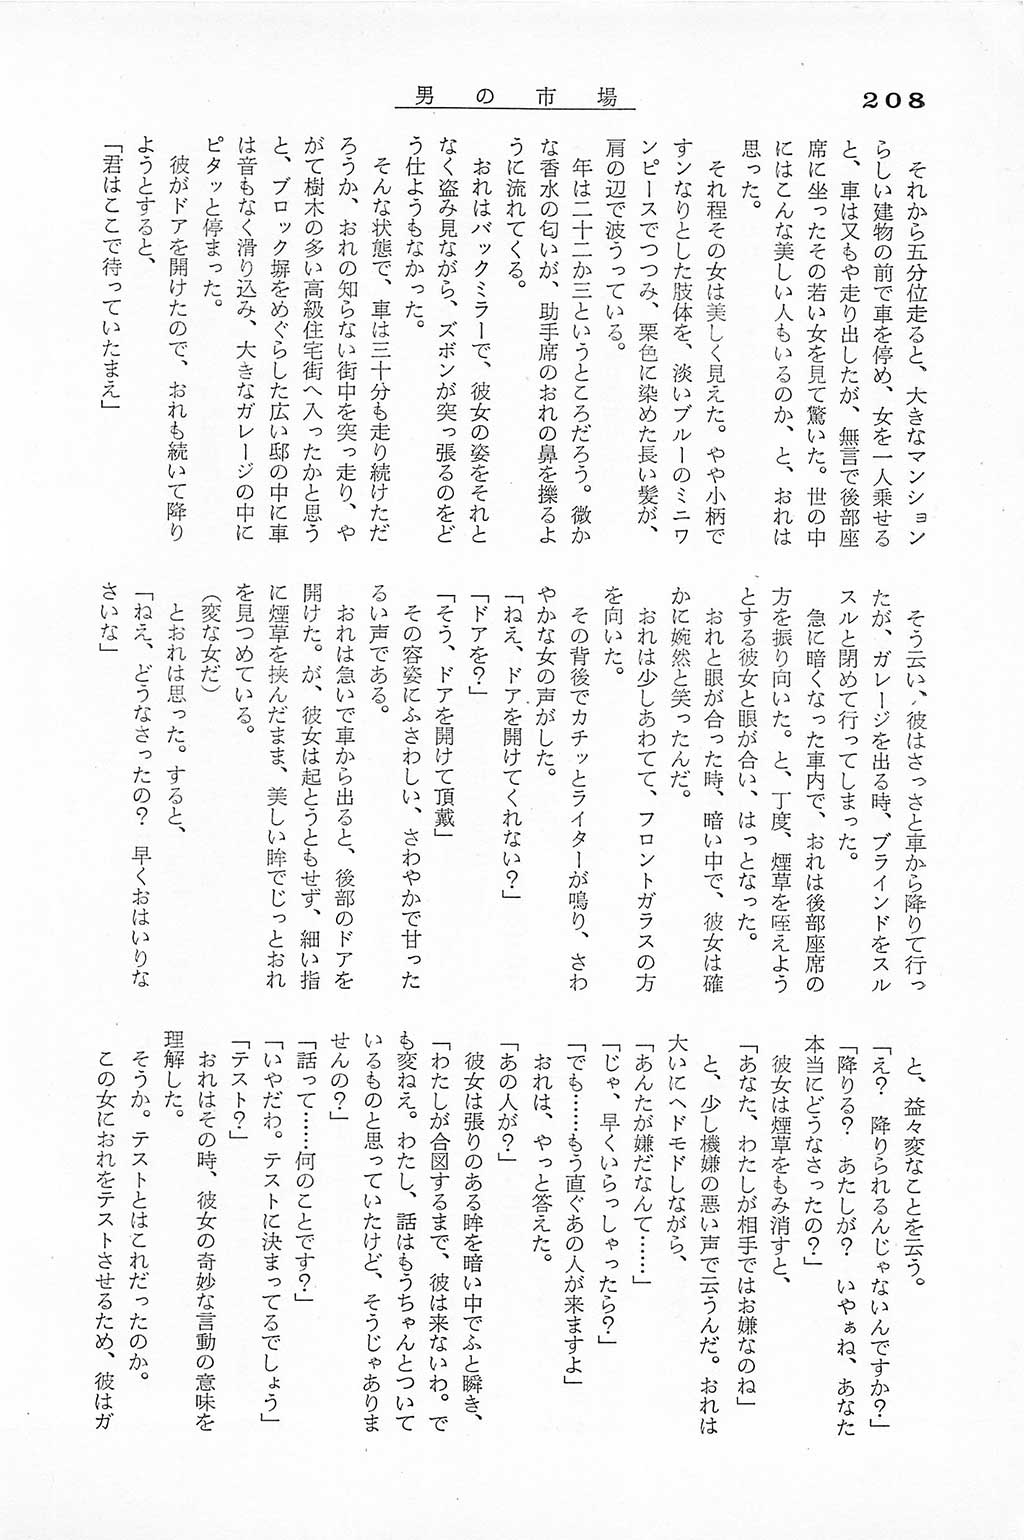 男の市場
208
それから五分位走ると、大きなマンション
らしい建物の前で車を停め、女を一人乗せる
と、車は又もや走り出したが、無言で後部座
席に坐ったその若い女を見て驚いた。世の中
にはこんな美しい人もいるのか、と、おれは
思った。
それ程その女は美しく見えた。やや小柄で
すンなりとした肢体を、淡いブルーのミニワ
ンピースでつつみ、栗色に染めた長い髪が、
肩の辺で波うっている。
年は二十二か三というところだろう。微か
な香水の匂いが、助手席のおれの鼻を擽るよ
うに流れてくる。
おれはバックミラーで、彼女の姿をそれと
なく盗み見ながら、ズボンが突っ張るのをど
う仕ようもなかった。
そんな状態で、車は三十分も走り続けただ
ろうか、おれの知らない街中を突っ走り、や
がて樹木の多い高級住宅街へ入ったかと思う
と、ブロック塀をめぐらした広い邸の中に車
は音もなく滑り込み、大きなガレージの中に
ピタッと停まった。
彼がドアを開けたので、おれも続いて降り
ようとすると、
「君はここで待っていたまえ」
そう云い、彼はさっさと車から降りて行っ
たが、ガレージを出る時、ブラインドをスル
スルと閉めて行ってしまった。
急に暗くなった車内で、おれは後部座席の
方を振り向いた。と、丁度、煙草を咥えよう
とする彼女と眼が合い、はっとなった。
おれと眼が合った時、暗い中で、彼女は確
かに婉然と笑ったんだ。
おれは少しあわてて、フロントガラスの方
を向いた。
その背後でカチッとライターが鳴り、さわ
やかな女の声がした。
「ねえ、ドアを開けてくれない？」
「ドアを？」
「そう、ドアを開けて頂戴」
その容姿にふさわしい、さわやかで甘った
るい声である。
おれは急いで車から出ると、後部のドアを
開けた。が、彼女は起とうともせず、細い指
に煙草を挟んだまま、美しい眸でじっとおれ
を見つめている。
（変な女だ）
とおれは思った。すると、
「ねえ、どうなさったの？　早くおはいりな
さいな」
と、益々変なことを云う。
「え？　降りられるんじゃないんですか？」
「降りる？　あたしが？　いやぁね、あなた
本当にどうなさったの？」
彼女は煙草をもみ消すと、
「あなた、わたしが相手ではお嫌なのね」
と、少し機嫌の悪い声で云うんだ。おれは
大いにヘドモドしながら、
「あんたが嫌だなんて……」
「じゃ、早くいらっしゃったら？」
「でも……もう直ぐあの人が来ますよ」
おれは、やっと答えた。
「あの人が？」
彼女は張りのある眸を暗い中でふと瞬き、
「わたしが合図するまで、彼は来ないわ。で
も変ねえ。わたし、話はもうちゃんとついて
いるものと思っていたけど、そうじゃありま
せんの？」
「話って……何のことです？」
「いやだわ。テストに決まってるでしょう」
「テスト？」
おれはその時、彼女の奇妙な言動の意味を
理解した。
そうか。テストとはこれだったのか。
この女におれをテストさせるため、彼はガ